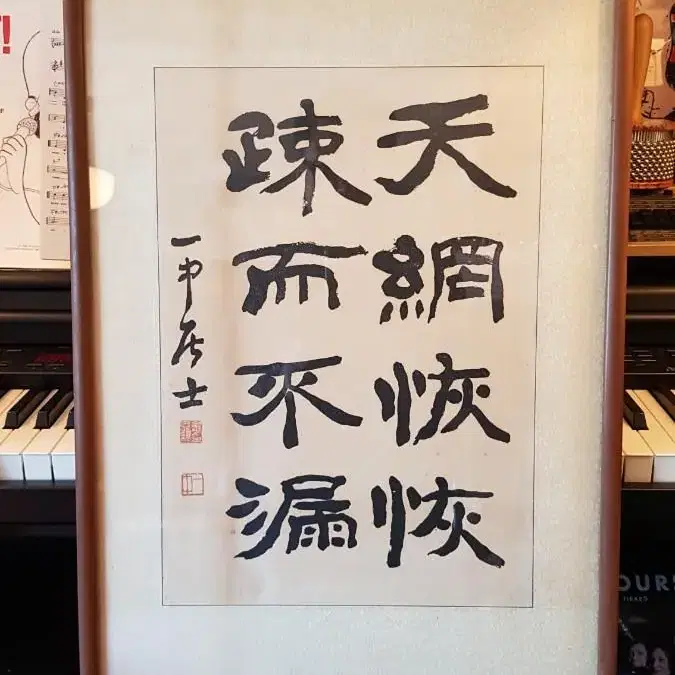 天網恢恢
疎而不漏
一中居士